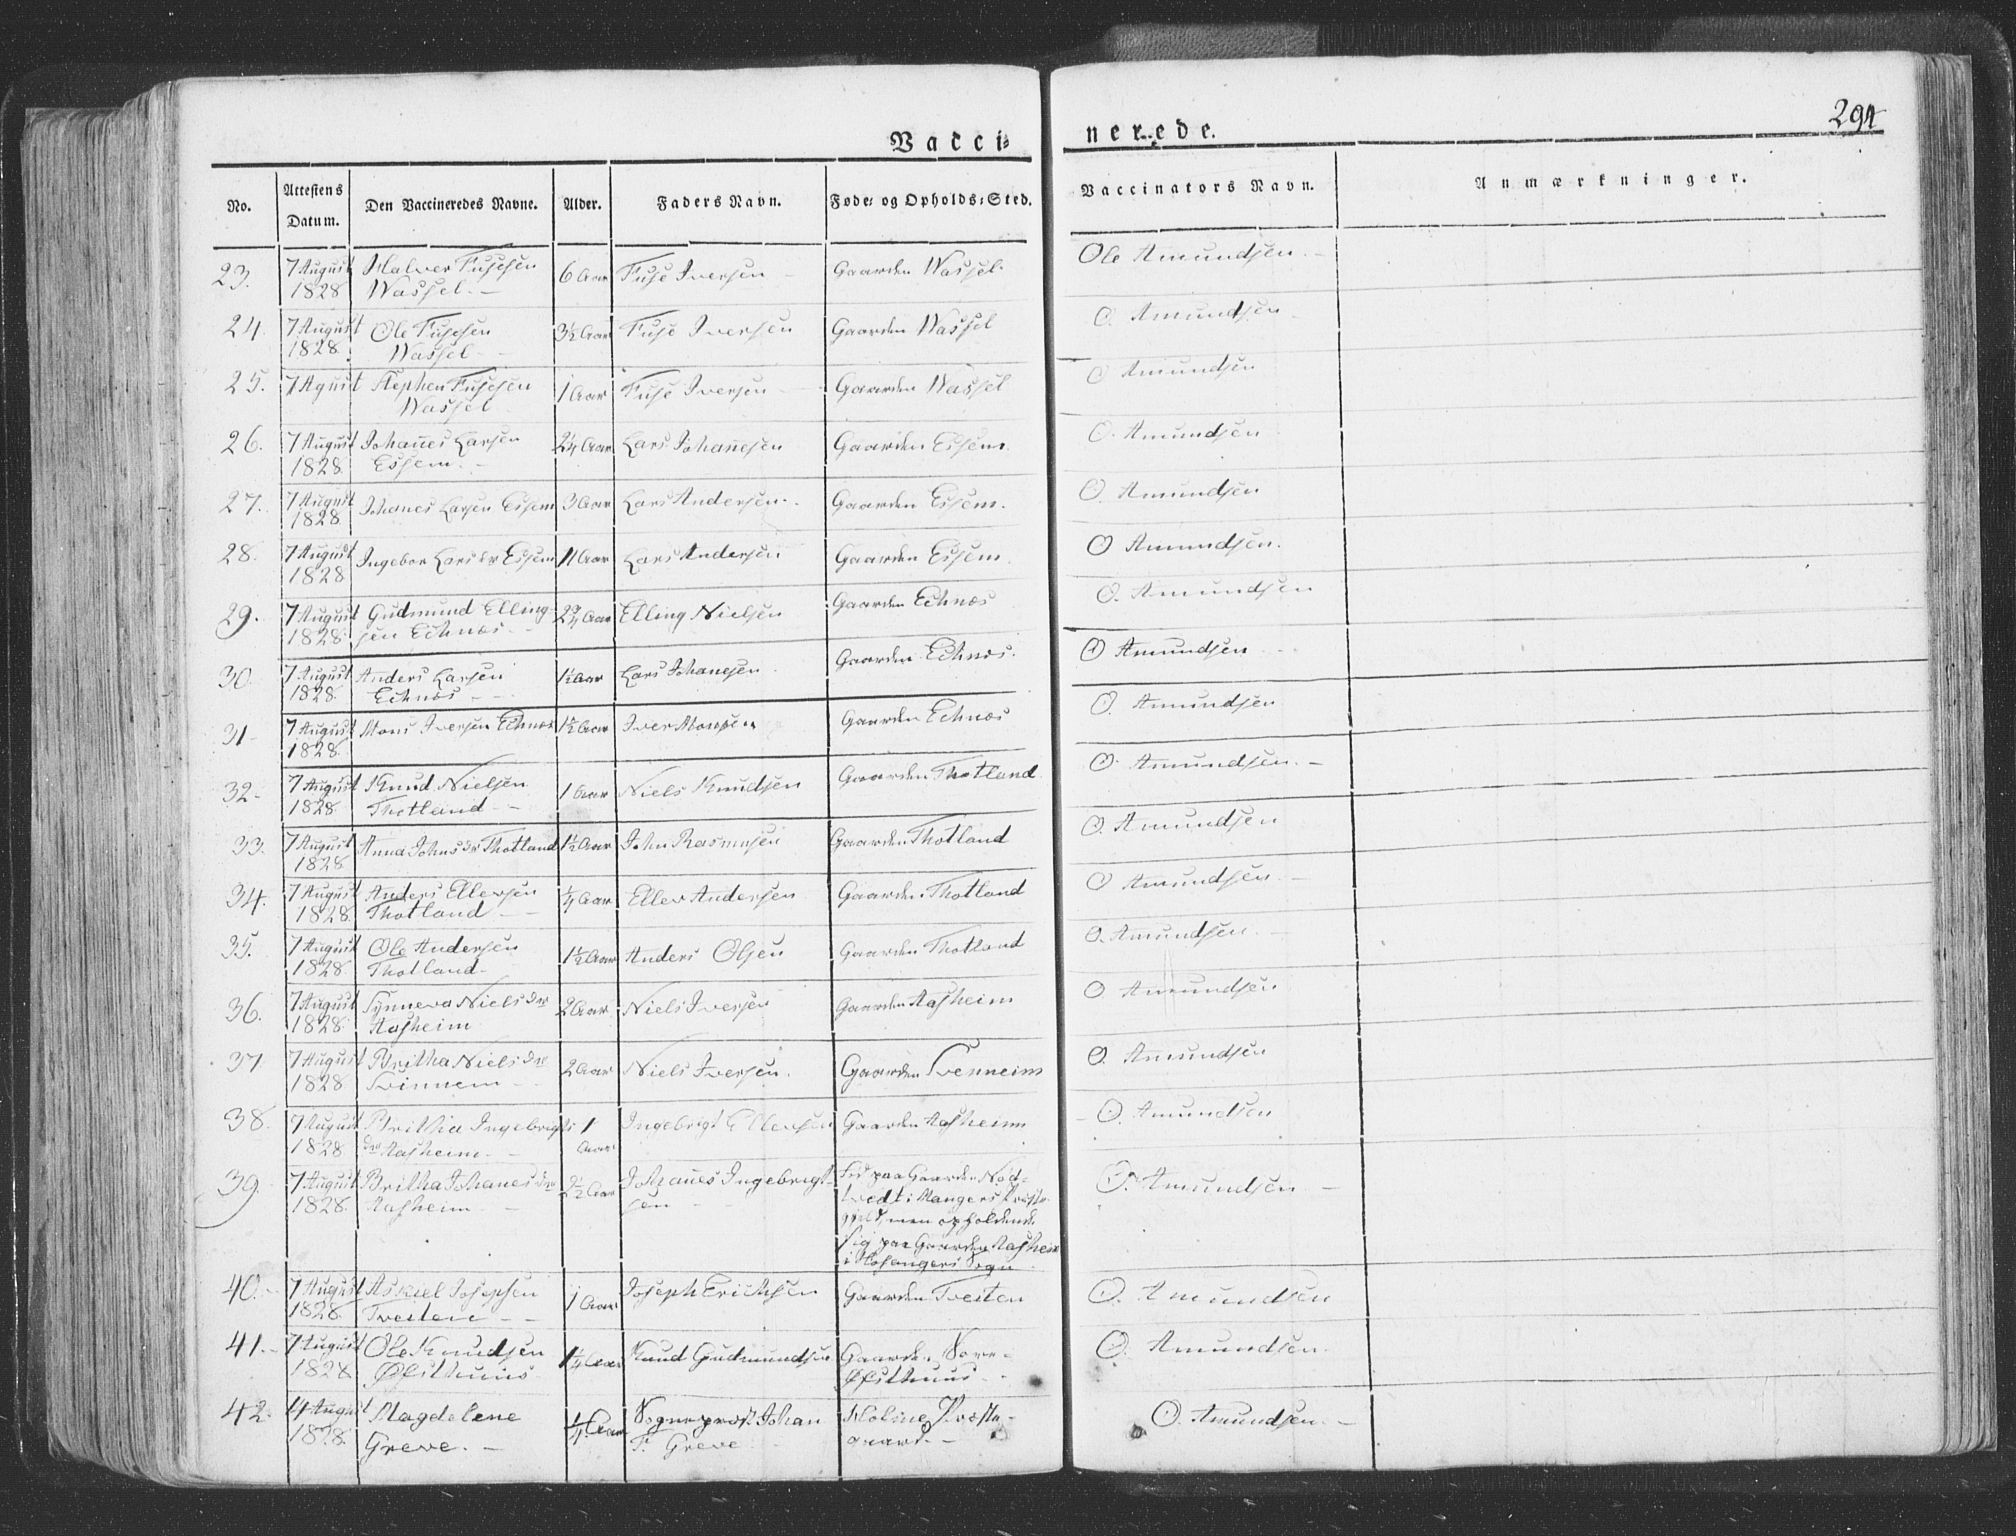 294
Vacci- nerede.
No. Attestens Datum. Den Vaccineredes Navne. Alder. Faders Navn. Føde- og Opholds-Sted. Vaccinators Navn. Anmærkninger.
23. 7 August 1828 Halver Fusesen Wassel. 6 Aar Fuse Iversen Gaarden Wassel. Ole Amundsen.
24. 7 August 1828 Ole Fusesen Wassel 3½ Aar Fuse Iversen Gaarden Wassel O. Amundsen.
25. 7 Agust Stephen Fusesen Wassel 1 Aar Fuse Iversen Gaarden Wassel O Amundsen
26. 7 August 1828 Johanes Larsen Essem. 2¼ Aar Lars Johanesen Gaarden Essem. O. Amundsen
27. 7 August 1828 Johanes Larsen Essem 3 Aar Lars Andersen. Gaarden Essem. O. Amundsen
28. 7 August 1828 Ingebor Lars dr Essem 11 Aar Lars Andersen Gaarden Essem. O Amundsen.
29. 7 August 1828 Gudmund Elling- sen Echnæs. 2¾ Aar Elling Nielsen Gaarden Echnæs O. Amundsen
30 7 August 1828 Anders Larsen Echnæs 1½ Aar Lars Johanesen Gaarden Echnæs. O Amundsen
31 7 August 1828. Mons Iversen Echnæs 1½ Aar Iver Monsen Gaarden Echnæs O. Amundsen
32 7 August 1828 Knud Nielsen Thotland 1 Aar Niels Knudsen Gaarden Thotland O. Amundsen.
33. 7 August 1828 Anna Johns dr Thotland 1½ Aar John Rasmusen Gaarden Thotland O. Amundsen
34. 7 August 1828. Anders Ellersen Thotland ¼ Aar Eller Andersen Gaarden Thotland O Amundsen.
35. 7 August 1828 Ole Andersen Thotland. 1½ Aar Anders Olsen Gaarden Thotland O. Amundsen.
36. 7 August 1828 Synneva Niels dr Aasheim 2 Aar Niels Iversen Gaarden Aasheim O Amundsen
37 7 August 1828 Britha Niels dr Svinnem 2 Aar Niels Iversen. Gaarden Svenneim O. Amundsen
38. 7 August 1828 Britha Ingebrigts dr Aasheim. 1 Aar Ingebrigt Ellersen Gaarden Aasheim O. Amundsen
39. 7 August 1828. Britha Johanes dr Aasheim 2½ Aar Johanes Ingebrigt- sen fød paa Gaarden Nød- tvedt i Mangers Præste- gjeld, men opholdende sig paa Gaarden Aasheim i Hosangers Sogn O. Amundsen
40. 7 August 1828. Askiel Josephsen Tveiten 1 Aar Joseph Erichsen Gaarden Tveiten O. Amundsen
41. 7 August 1828 Ole Knudsen Øfsthuus 1¼ Aar Knud Gudmundsen Gaarden Øfsthuus O. Amundsen.
42. 4 August 1828. Magdelene Greve. ¼ Aar Sogneprest Johan F. Greve Præste- gaard O. Amundsen.